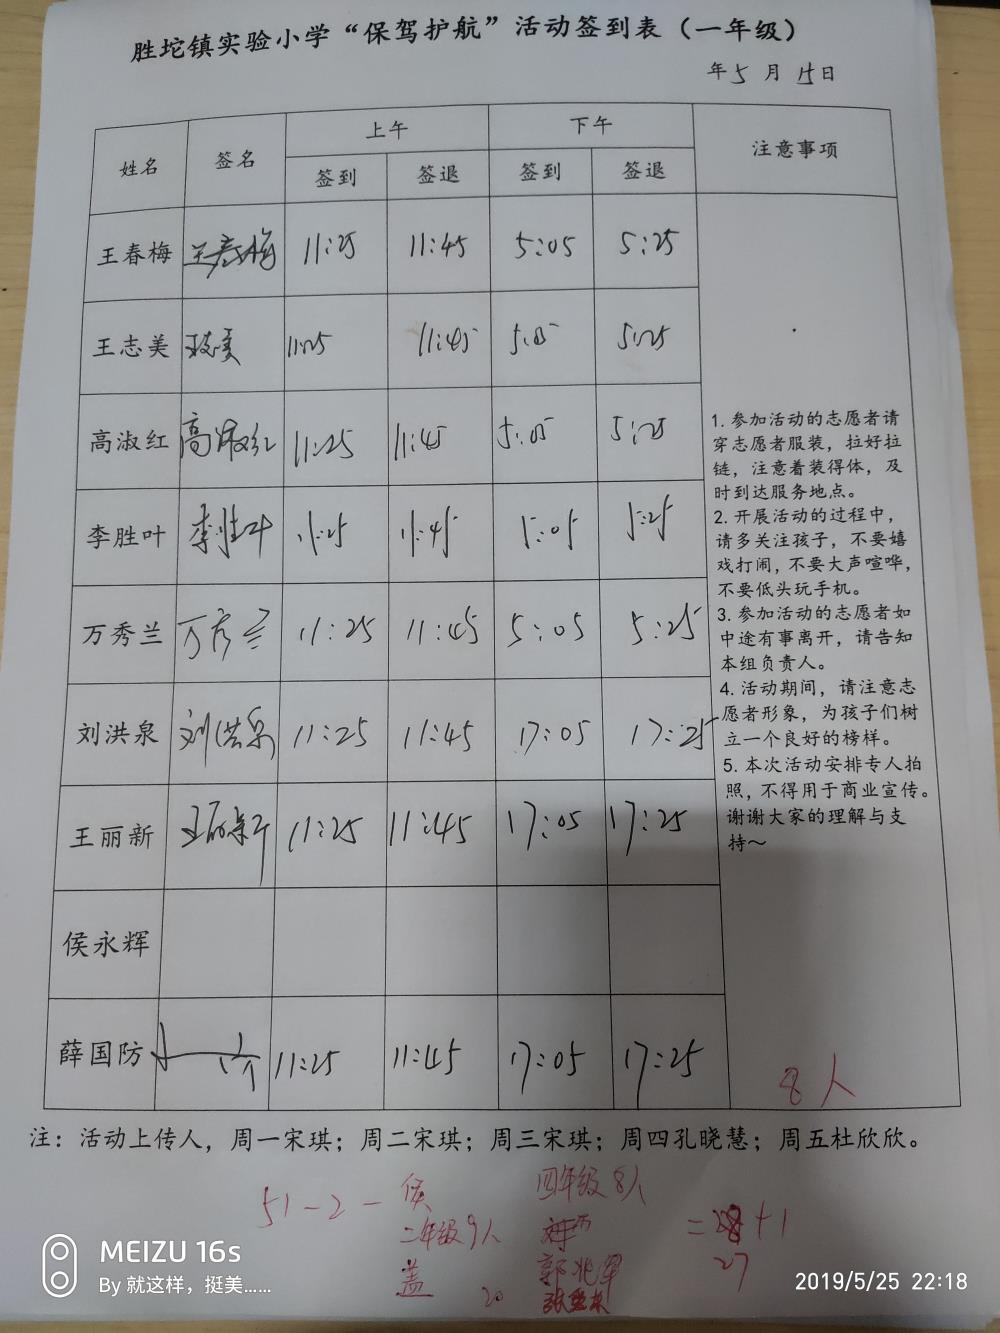 胜坨镇实验小学“保驾护航”活动签到表（一年级）
年5月15日
姓名 签名 上午 下午 注意事项
签到 签退 签到 签退
王春梅 王春梅 11:25 11:45 5:05 5:25
王志美 王志美 11:25 11:45 5:05 5:25
高淑红 高淑红 11:25 11:45 5:05 5:25
李胜叶 李胜叶 11:25 11:45 5:05 5:25
万秀兰 万秀兰 11:25 11:45 5:05 5:25
刘洪泉 刘洪泉 11:25 11:45 17:05 17:25
王丽新 王丽新 11:25 11:45 17:05 17:25
侯永辉
薛国防 11:25 11:45 17:05 17:25
1. 参加活动的志愿者请
穿志愿者服装，拉好拉
链，注意着装得体，及
时到达服务地点。
2. 开展活动的过程中，
请多关注孩子，不要嬉
戏打闹，不要大声喧哗，
不要低头玩手机。
3. 参加活动的志愿者如
中途有事离开，请告知
本组负责人。
4. 活动期间，请注意志
愿者形象，为孩子们树
立一个良好的榜样。
5. 本次活动安排专人拍
照，不得用于商业宣传。
谢谢大家的理解与支
持～
8人
注：活动上传人，周一宋琪；周二宋琪；周三宋琪；周四孔晓慧；周五杜欣欣。
51-2-侯 四年级8人
二年级9人 =28+1
盖 20 郭兆军 27
MEIZU 16s
By 就这样，挺美......
2019/5/25 22:18